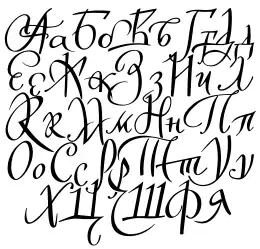 Аа Бб Вв Гг Дд
Ее Жж Зз Ии Лл
Кк Мм Нн Пп
Оо Сс Рр Тт Уу
Х Ц Ш Ф Я